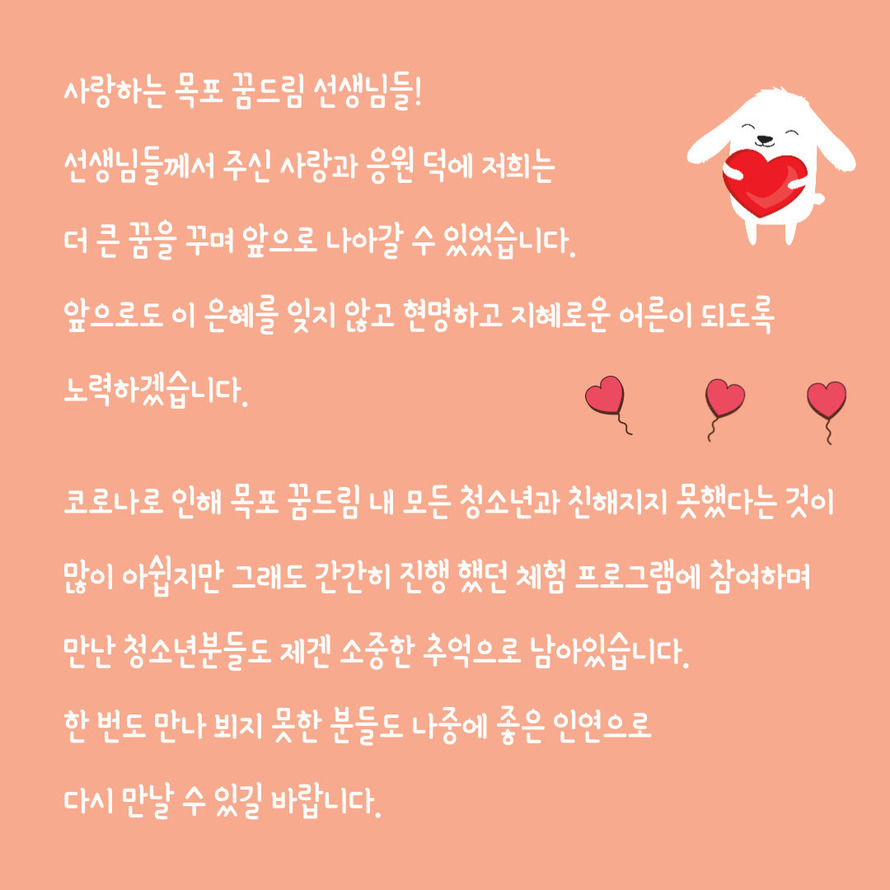 사랑하는 목포 꿈드림 선생님들!
선생님들께서 주신 사랑과 응원 덕에 저희는
더 큰 꿈을 꾸며 앞으로 나아갈 수 있었습니다.
앞으로도 이 은혜를 잊지 않고 현명하고 지혜로운 어른이 되도록
노력하겠습니다.
코로나로 인해 목포 꿈드림 내 모든 청소년과 친해지지 못했다는 것이
많이 아쉽지만 그래도 간간히 진행 했던 체험 프로그램에 참여하며
만난 청소년분들도 제겐 소중한 추억으로 남아있습니다.
한 번도 만나 뵈지 못한 분들도 나중에 좋은 인연으로
다시 만날 수 있길 바랍니다.